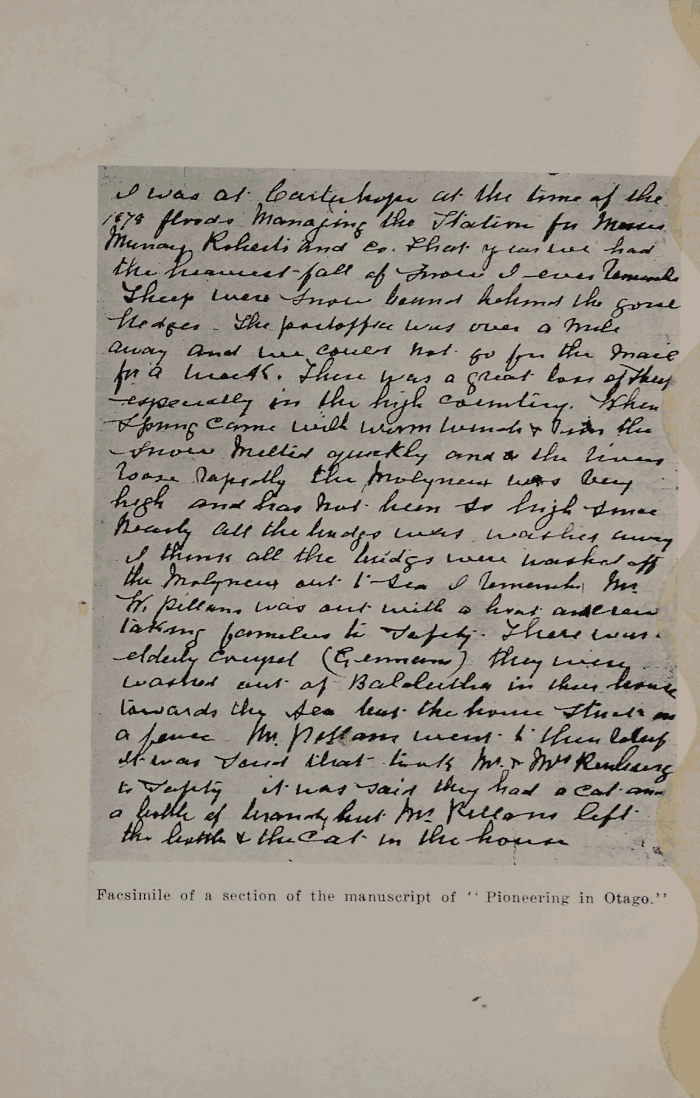 I was at Carterhope at the time of the
1878 floods Managing the Station for Messrs
Murray Roberts and Co. That year we had
the heaviest fall of Snow I ever
Sheep were Snow bound behind the gorse
hedges. The postoffice was over a Mile
away and we could not go for the Mail
for a week. There was a great loss of Sheep
especially in the high country. When
Spring came with warm winds & the
Snow Melted quickly and the rivers
rose rapidly the Molyneux was Very
high and has not been so high since
Nearly all the bridges were washed away
I think all the bridges were washed off
the Molyneux out to Sea I remember Mr
W. Pillans was out with a boat
taking families to Safety. There was
elderly (Germans) they were
washed out of Balclutha in their house
towards the Sea but the house Stuck on
a fence Mr. Pillans went to their
it was Said that took Mr. & Mrs
to Safety it was said they had a cat and
a bottle of brandy but Mr Pillans left
the bottle & the Cat in the house
Facsimile of a section of the manuscript of " Pioneering in Otago."